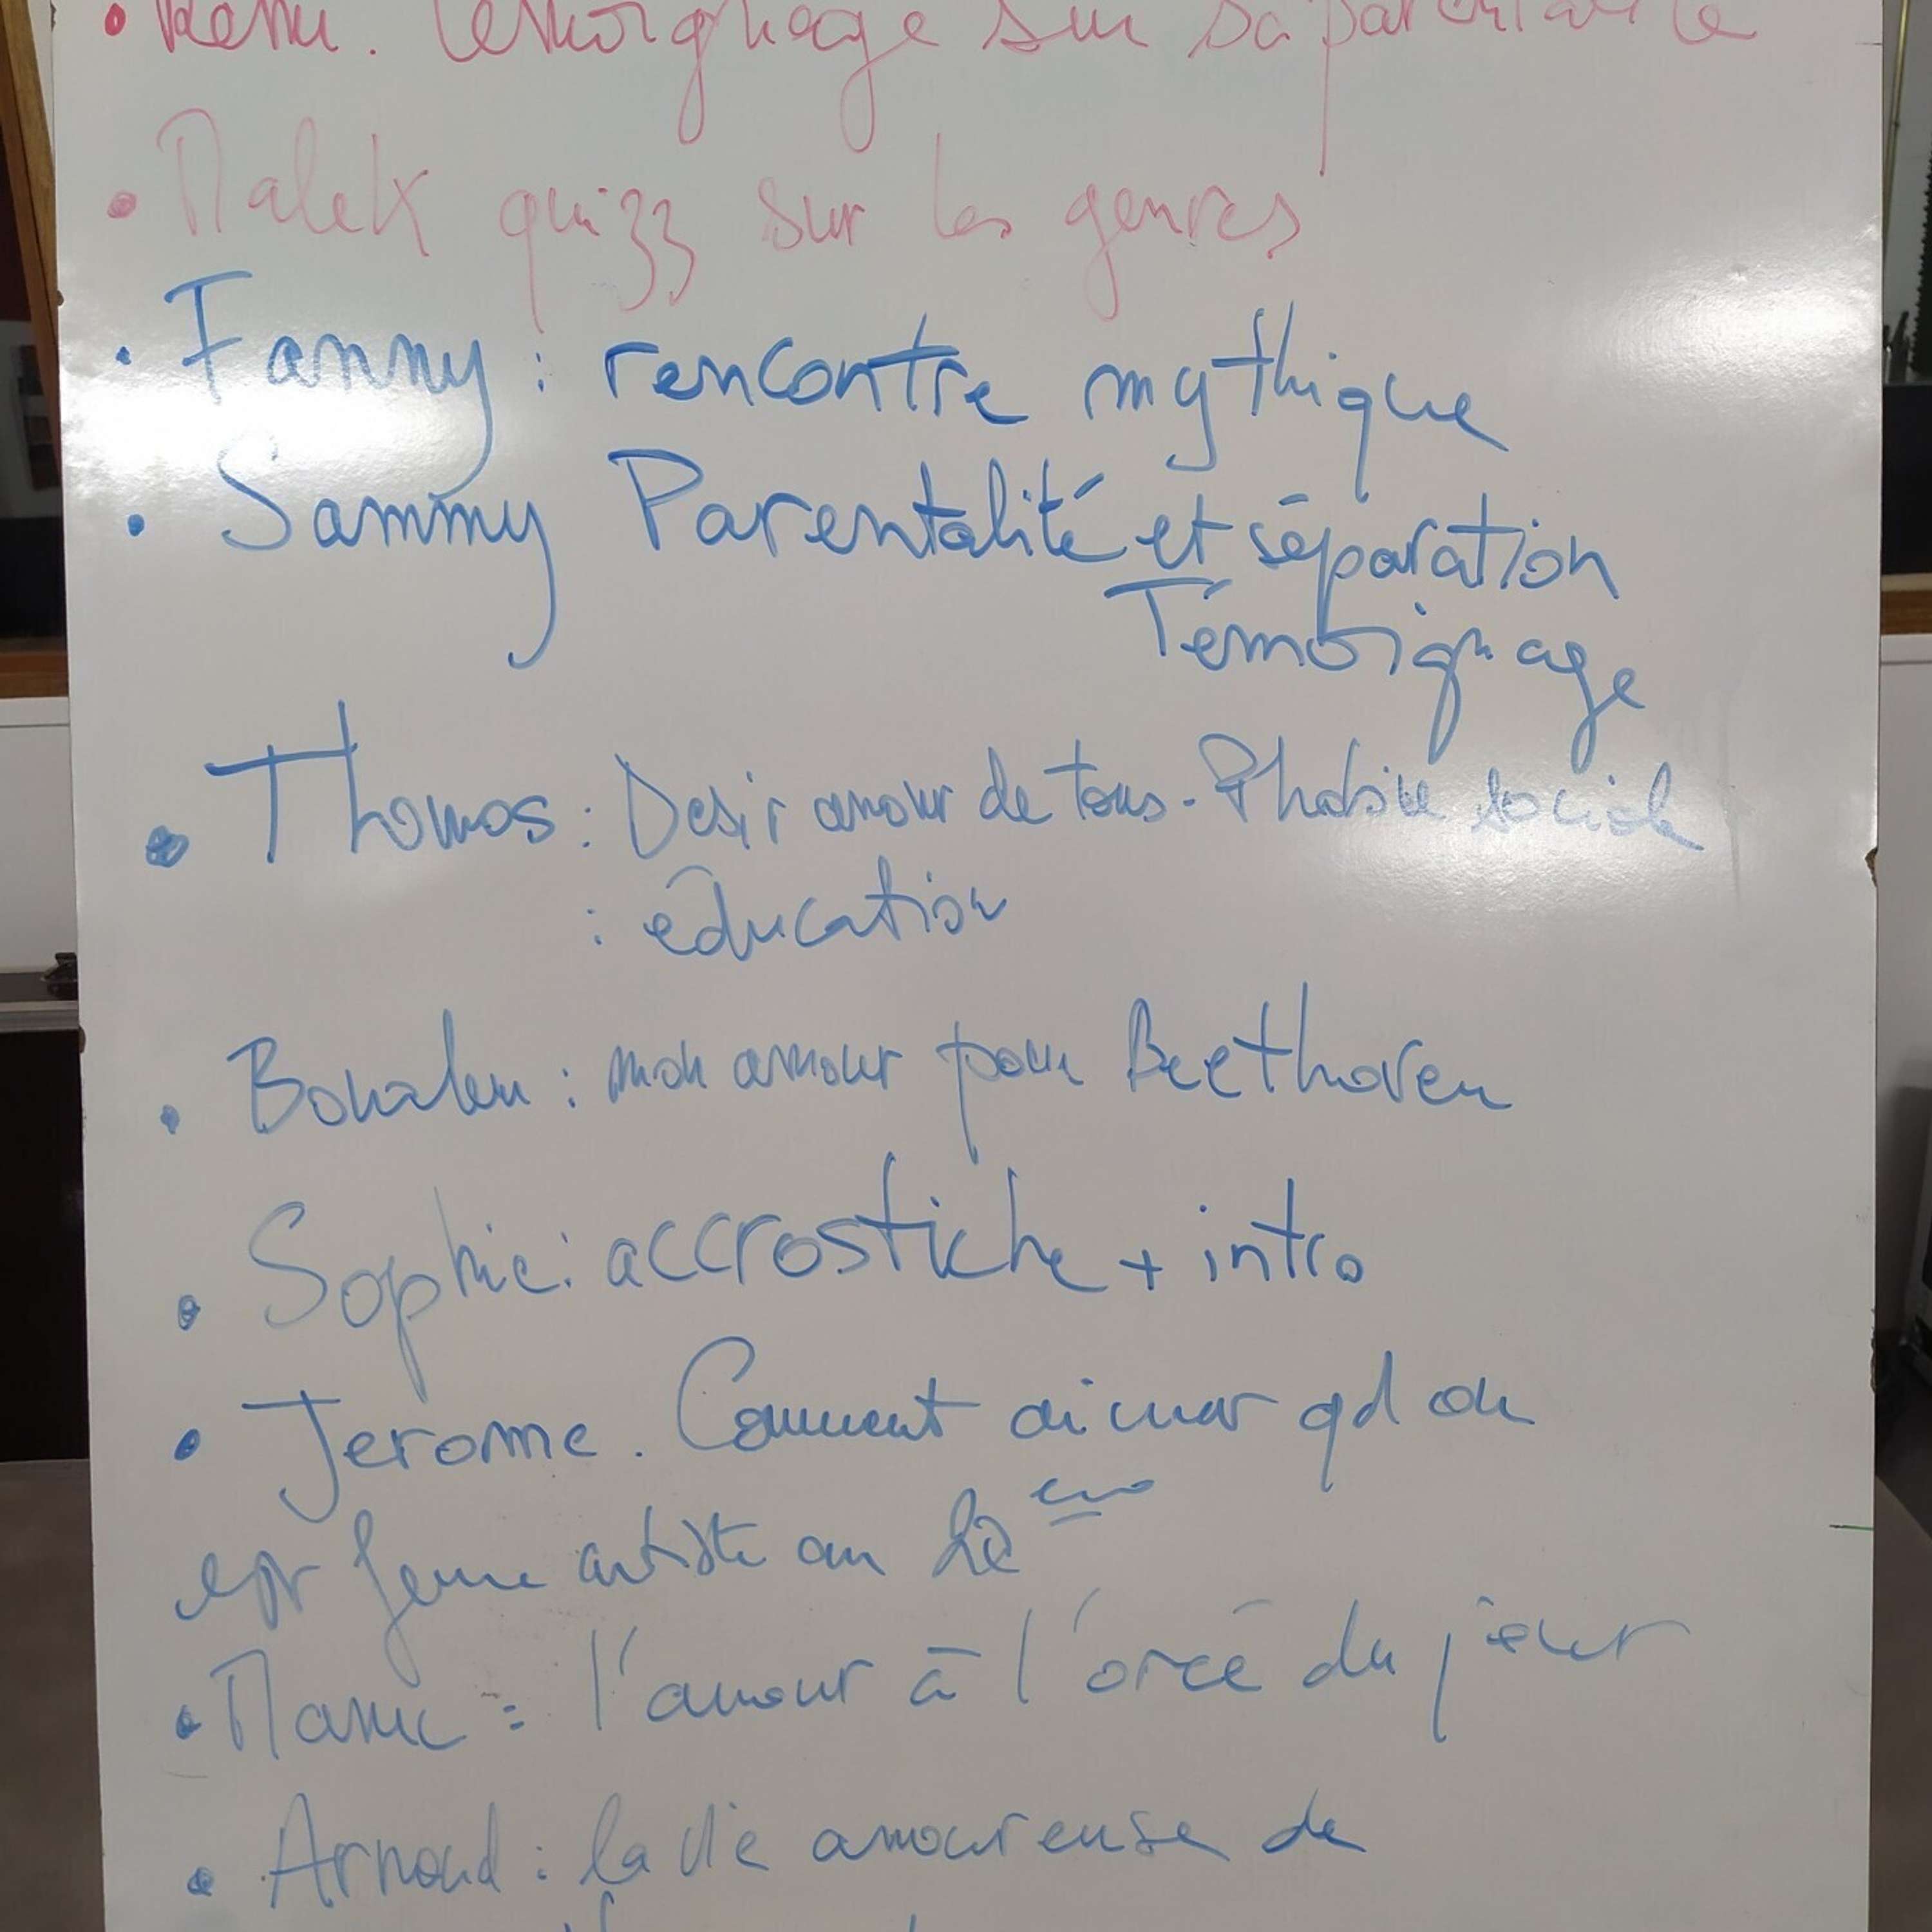 • Remi. témoignage sur sa parentalité
• Malek quizz sur les genres
• Fanny : rencontre mythique
• Sammy Parentalité et séparation
Témoignage
• Thomas : Desir amour de tous - Phobie sociale
: éducation
• : mon amour pour Beethoven
• Sophie : accrostiche + intro
• Jerome. Comment aimer qd on
est femme artiste au 20 eme
• Marie : l'amour à l'orée du jour
• Arnaud : la vie amoureuse de